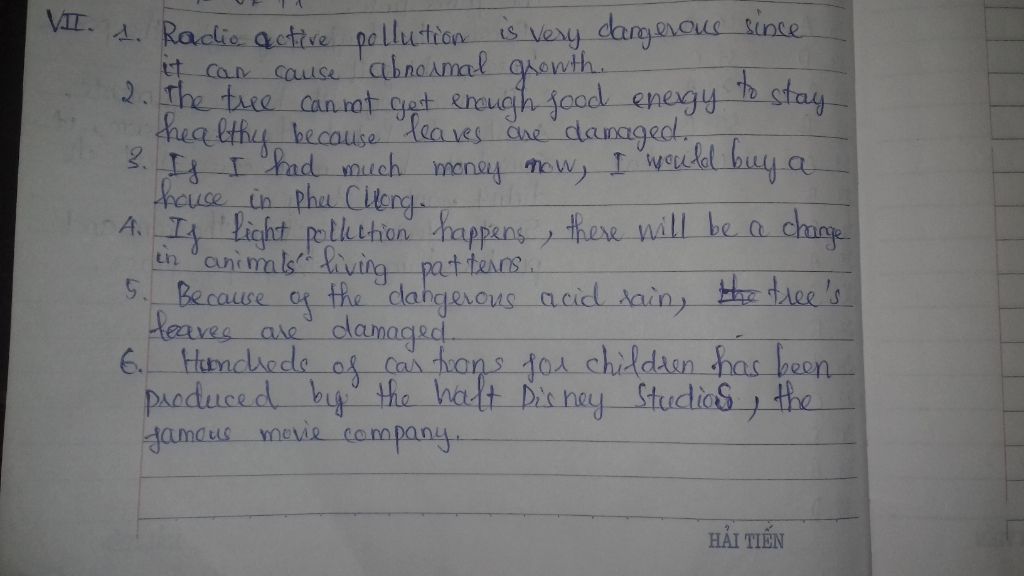 VII. 1. Radio active pollution is very dangerous since
it can cause abnormal growth.
2. The tree cannot get enough food energy to stay
healthy because leaves are damaged.
3. If I had much money now, I would buy a
house in Phu Cuong.
4. If light pollution happens, there will be a change
in animals' living patterns.
5. Because of the dangerous acid rain, the tree's
leaves are damaged.
6. Hundreds of cartoons for children has been
produced by the Walt Disney Studios, the
famous movie company.
HẢI TIẾN